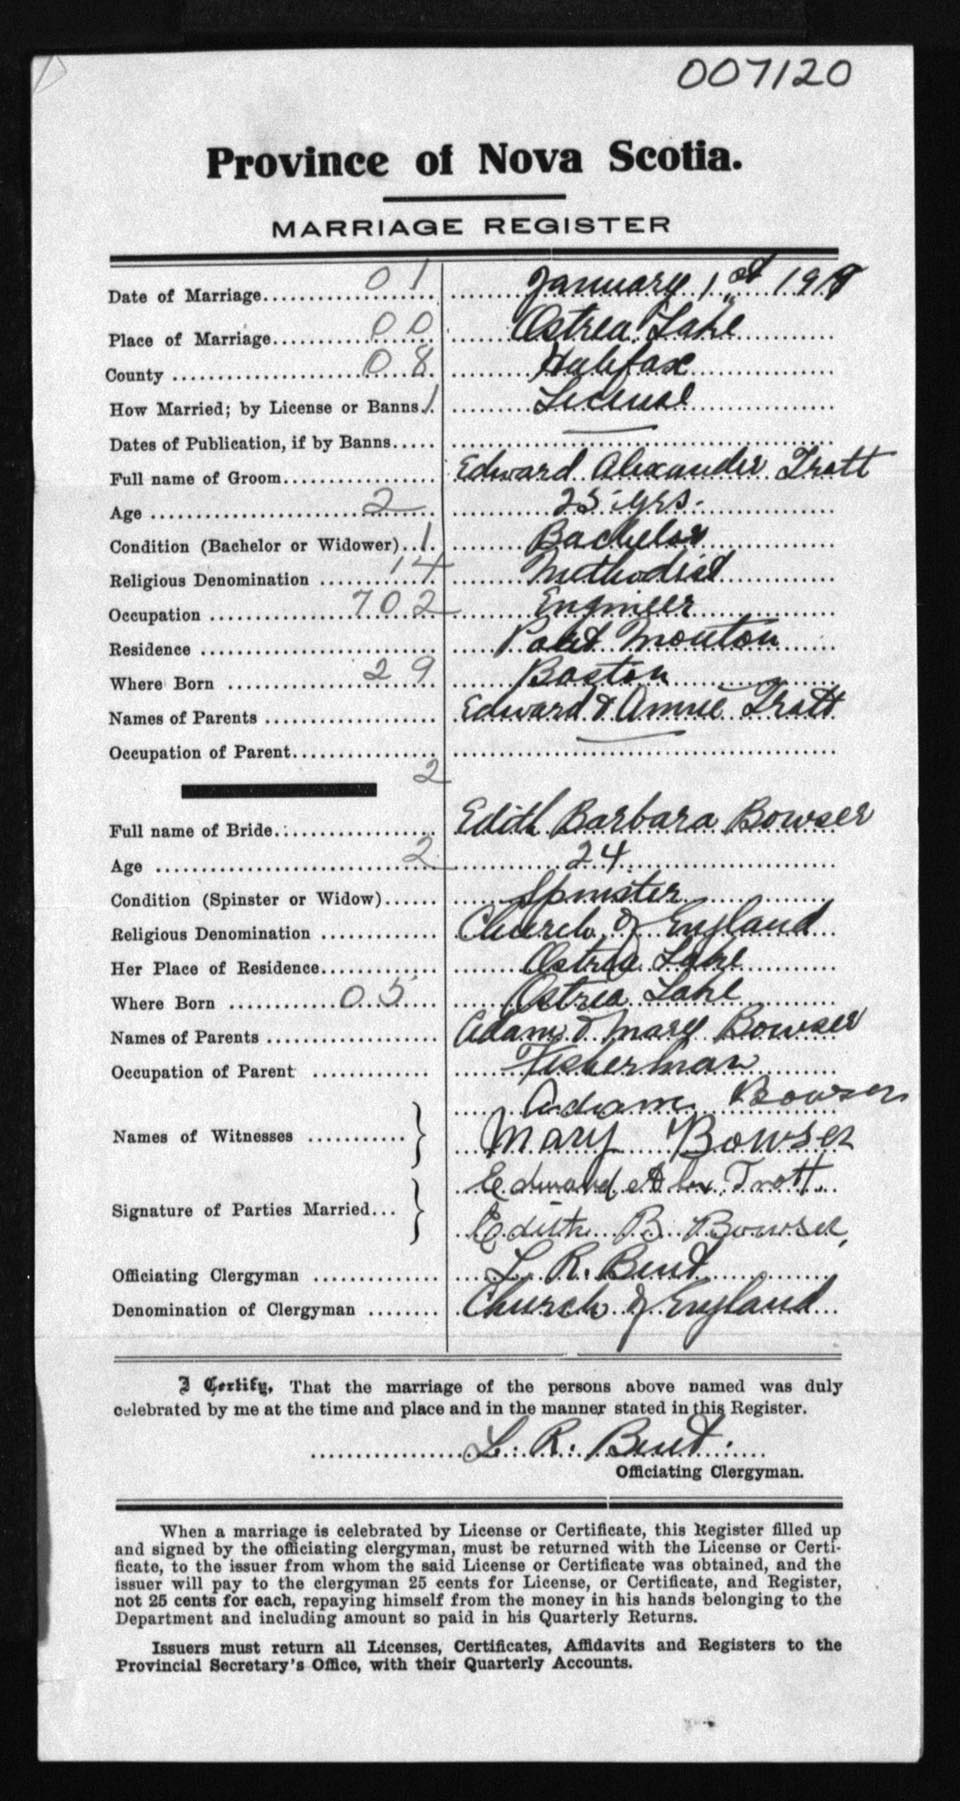 007120
Province of Nova Scotia.
MARRIAGE REGISTER
Date of Marriage 01 January 1st
Place of Marriage 00 Ostrea Lake
County 08 Halifax
How Married; by License or Banns 1 License
Dates of Publication, if by Banns
Full name of Groom Edward Alexander Trott
Age 2 25 yrs.
Condition (Bachelor or Widower) 1 Bachelor
Religious Denomination 14 Methodist
Occupation 702 Engineer
Residence Port Mouton
Where Born 29 Boston
Names of Parents Edward & Annie Trott
Occupation of Parent
2
Full name of Bride Edith Barbara Bowser
Age 2 24
Condition (Spinster or Widow) Spinster
Religious Denomination Church of England
Her Place of Residence Ostrea Lake
Where Born 05 Ostrea Lake
Names of Parents Adam & Mary Bowser
Occupation of Parent Fisherman
Adam Bowser
Names of Witnesses Mary Bowser
Edward Alex Trott
Signature of Parties Married Edith B Bowser
Officiating Clergyman L. R. Bent
Denomination of Clergyman Church of England
I Certify, That the marriage of the persons above named was duly
celebrated by me at the time and place and in the manner stated in this Register.
L. R. Bent.
Officiating Clergyman.
When a marriage is celebrated by License or Certificate, this Register filled up
and signed by the officiating clergyman, must be returned with the License or Certi-
ficate, to the issuer from whom the said License or Certificate was obtained, and the
issuer will pay to the clergyman 25 cents for License, or Certificate, and Register,
not 25 cents for each, repaying himself from the money in his hands belonging to the
Department and including amount so paid in his Quarterly Returns.
Issuers must return all Licenses, Certificates, Affidavits and Registers to the
Provincial Secretary's Office, with their Quarterly Accounts.